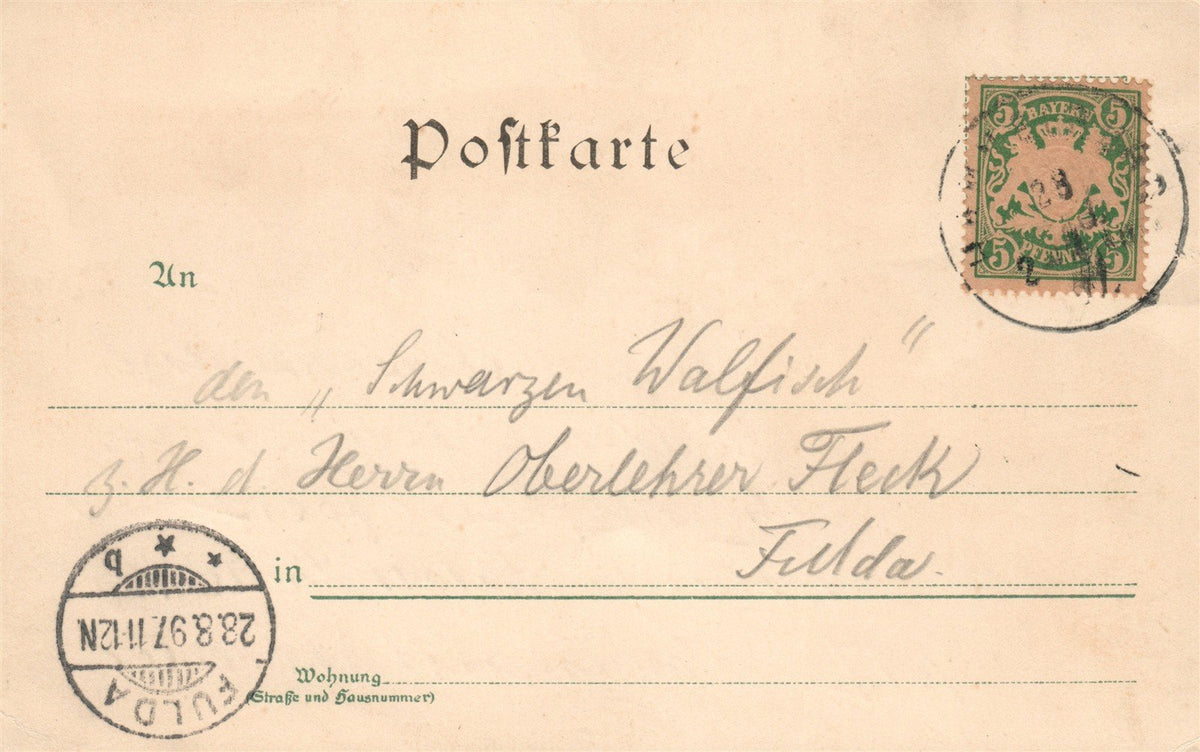 Postkarte
5 BAYERN 5
5 PFENNIG 5
28
2
An
den „Schwarzen Walfisch“
z. H. d. Herrn Oberlehrer Fleck
Fulda.
in
b
28.8.97.11-12N.
FULDA
Wohnung
(Straße und Hausnummer)